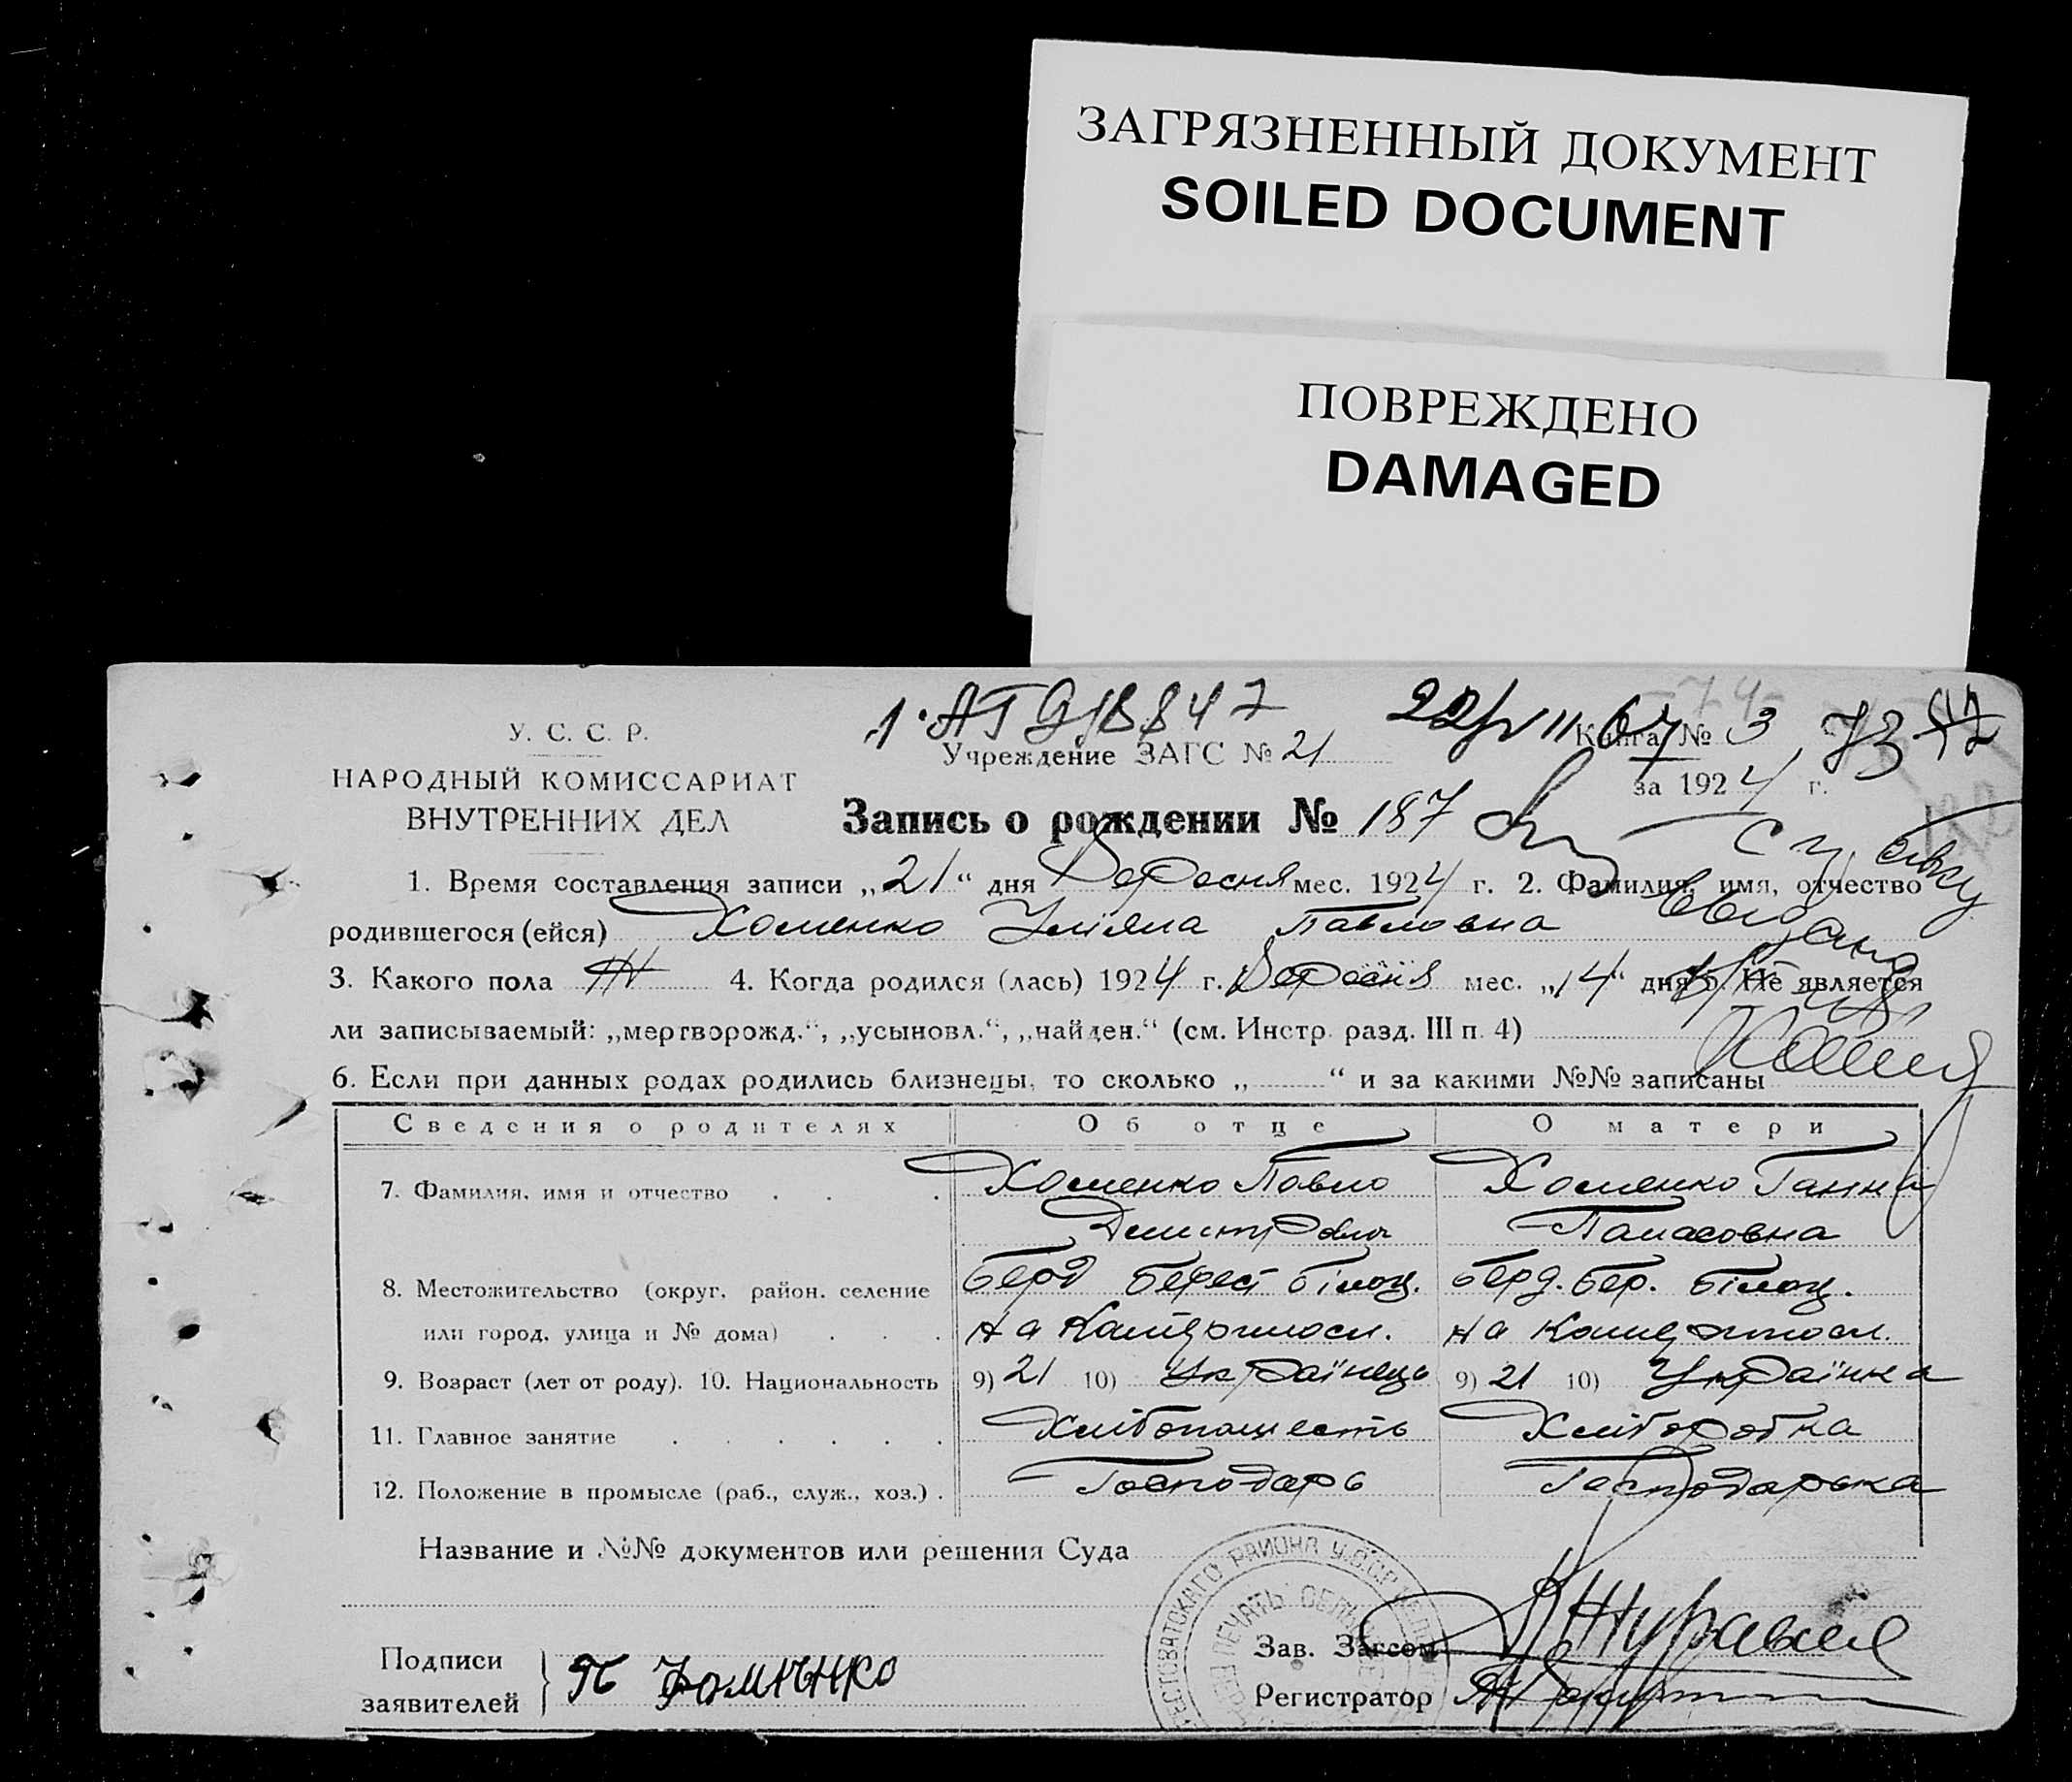 ЗАГРЯЗНЕННЫЙ ДОКУМЕНТ
SOILED DOCUMENT
ПОВРЕЖДЕНО
DAMAGED
-74-
У. С. С. Р.
НАРОДНЫЙ КОМИССАРИАТ
ВНУТРЕННИХ ДЕЛ
Учреждение ЗАГС № 21
Книга № 3 73
за 1924 г.
Запись о рождении № 187
1. Время составления записи „21“ дня Вересня мес. 1924 г. 2. Фамилия, имя, отчество
родившегося (ейся) Хоменко Уліяна Павловна
3. Какого пола Ж 4. Когда родился (лась) 1924 г. Вересня мес. „14“ дня 5. Не является
ли записываемый: „мертворожд.“, „усыновл.“, „найден.“ (см. Инстр. разд. III п. 4)
6. Если при данных родах родились близнецы, то сколько „ “ и за какими №№ записаны
Сведения о родителях Об отце О матери
7. Фамилия, имя и отчество Хоменко Павло Хоменко Ганна
Панасовна
8. Местожительство (округ, район, селение Берд Берест Білоц. Берд. Бер. Білоц.
или город, улица и № дома)
9. Возраст (лет от роду). 10. Национальность 9) 21 10) Українець 9) 21 10) Українка
11. Главное занятие Хліборобка
12. Положение в промысле (раб., служ., хоз.) Господарь Господарька
Название и №№ документов или решения Суда
Подписи
заявителей
Зав. Загсом
Регистратор